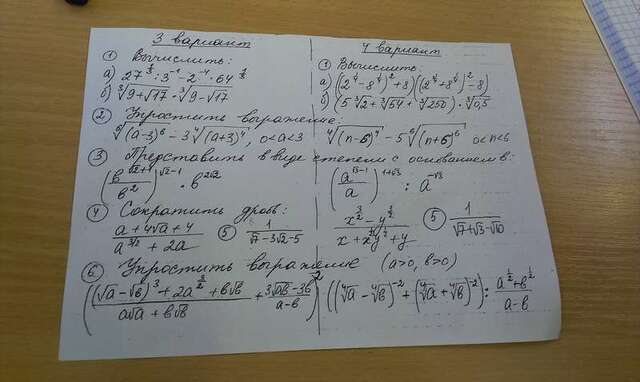 3 вариант
① Вычислить:
а) 27^⅓ : 3⁻¹ − 2⁻⁴ · 64^½
б) ∛(9+√17) · ∛(9−√17)
② Упростить выражение:
⁶√(a−3)⁶ − 3 ⁴√(a+3)⁴, 0<a<3
③ Представить в виде степени с основанием в:
(b^(√2+1) / b²)^(√2−1) · b^(2√2)
④ Сократить дробь:
(a+4√a+4) / (a^(3/2)+2a)
⑤ 1 / (√7−3√2−5)
⑥ Упростить выражение (a>0, b>0)
(((√a−√b)³+2a^(3/2)+b√b) / (a√a+b√b) + (3√ab−3b) / (a−b))²
4 вариант
① Вычислить:
а) (2^¼−8^¼)²+8)((2^¼+8^¼)²−8)
б) (5∛2+∛54+∛250) · ∛0,5
⁴√(n−6)⁴ − 5 ⁶√(n+6)⁶ 0<n<6
(a^(√3−1) / a)^(1+√3) : a^(−√3)
(x^(3/2)−y^(3/2)) / (x+x^½y^½+y)
⑤ 1 / (√7+√3−√10)
((⁴√a−⁴√b)⁻²+(⁴√a+⁴√b)⁻²) : (a^½+b^½) / (a−b)